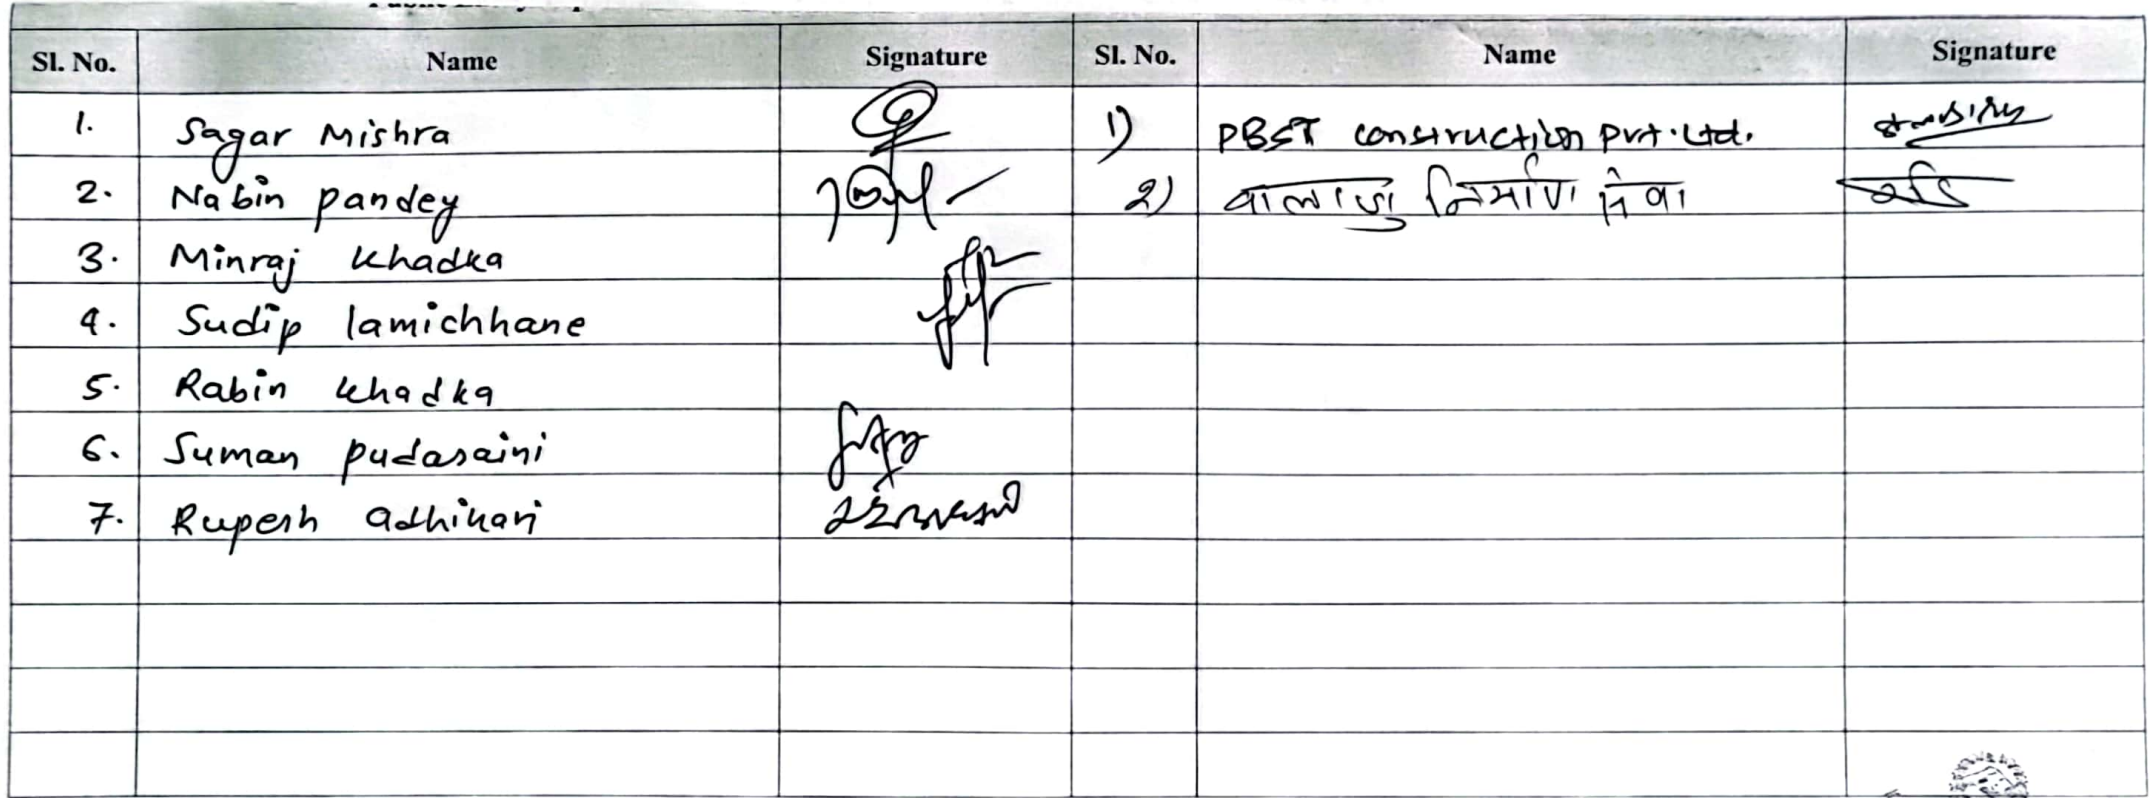 Sl. No. Name Signature Sl. No. Name Signature
1. Sagar Mishra 1) PBST construction pvt. Ltd.
2. Nabin pandey २) बालाजु निर्माण सेवा
3. Minraj khadka
4. Sudip lamichhane
5. Rabin khadka
6. Suman pudasaini
7. Rupesh adhikari